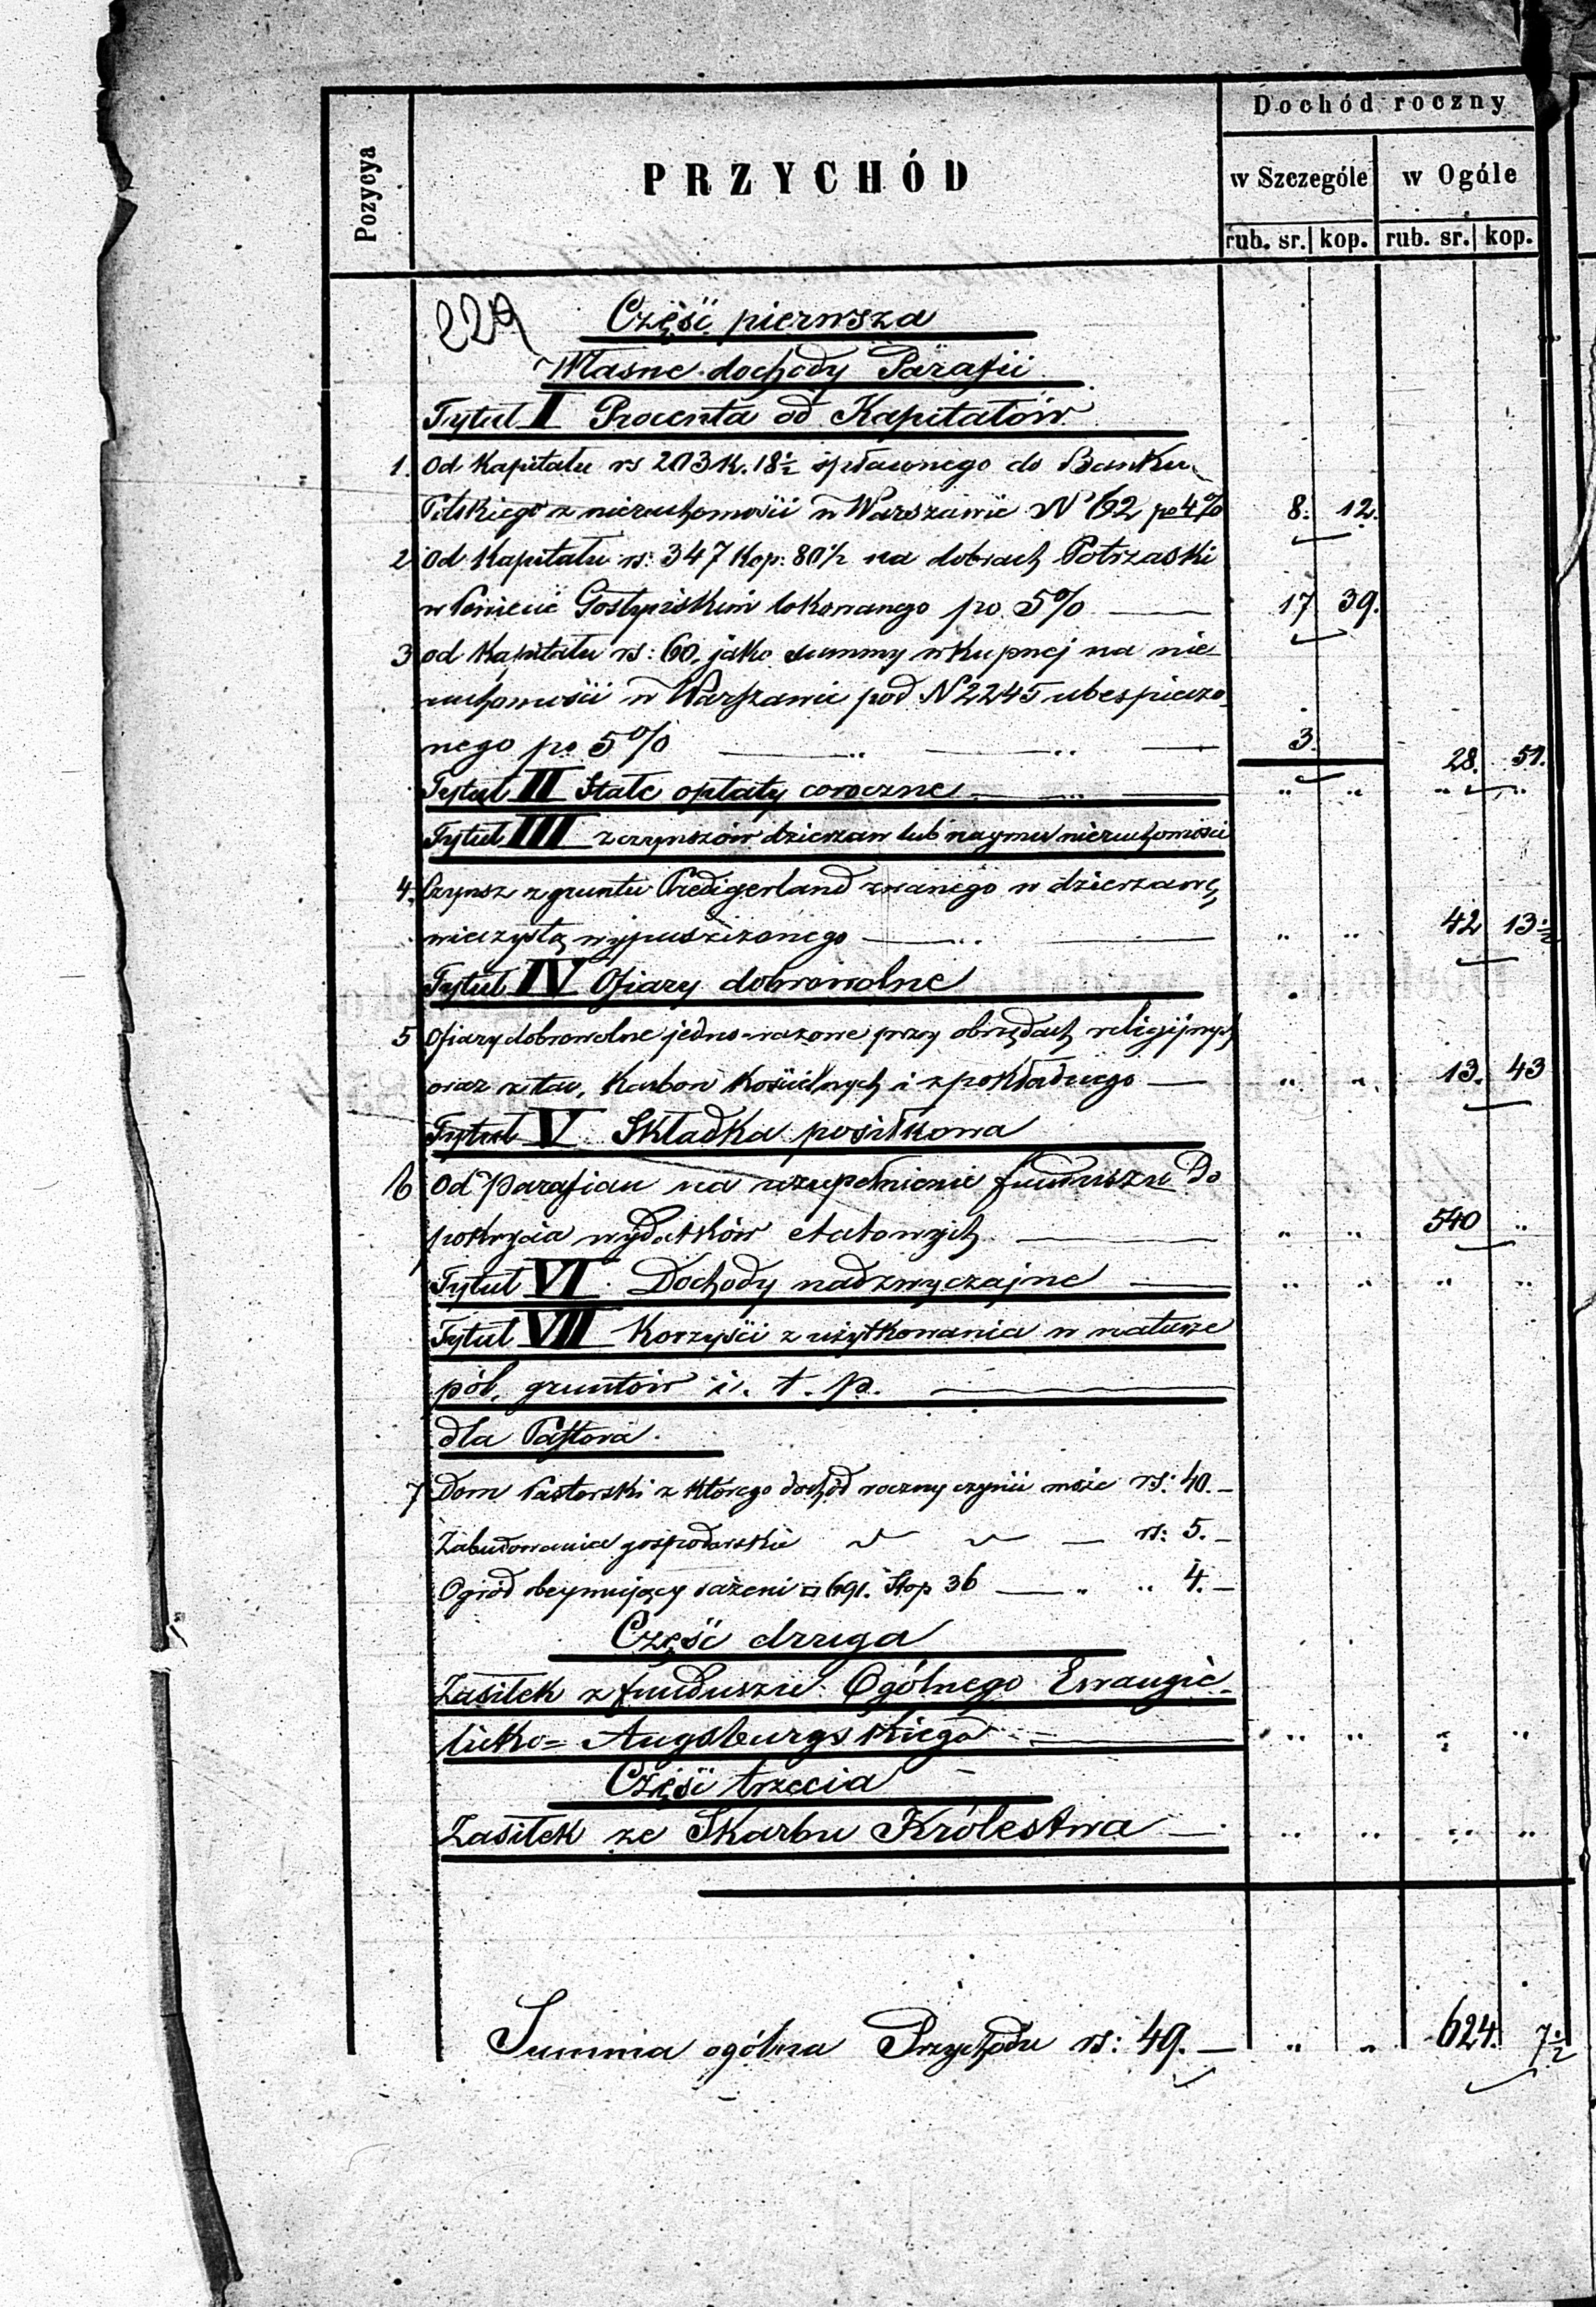 Dochód roczny
Pozycya
PRZYCHÓD
w Szczególe
w Ogóle
rub. sr. kop. rub. sr. kop.
229
Część pierwsza
Własne dochody Parafii
Tytuł I Procenta od Kapitałów
1. Od Kapitału rs 203 k. 18½ spławnego do Banku
Polskiego z nieruchomości w Warszawie N 62 po 4% 8. 12.
2 Od Kapitału rs: 347 Kop: 80½ na dobrach Potrzaski
w Powiecie Gostyńskim lokowanego po 5% 17 39.
3 od Kapitału rs: 60. jako summy wkupnej na nie-
ruchomości w Warszawie pod N 2245 ubespieczo-
nego po 5% 3. 28. 51.
Tytuł II Stałe opłaty coroczne
Tytuł III z czynszów dzierzaw lub naymu nieruchomości
4. Czynsz z gruntu Predigerland zwanego w dzierzawę
wieczystą wypuszczonego 42 13½
Tytuł IV Ofiary dobrowolne
5 Ofiary dobrowolne jedno-razowe przy obrzędach religijnych
oraz z tac, Karbon Kościelnych i z pokładnego 13. 43
Tytuł V Składka posiłkowa
6 Od Parafian na uzupełnienie funduszu do
pokrycia wydatków etatowych 540
Tytuł VI Dochody nadzwyczajne
Tytuł VII Korzyści z użytkowania w naturze
pól, gruntów i. t. p.
dla Pastora.
7 Dom Pastorski z którego dochód roczny czynić może rs: 40.—
Zabudowania gospodarskie rs: 5.—
Ogród obeymujący sążeni □ 691. Stop 36 4.—
Część druga
Zasiłek z funduszu Ogólnego Ewangie-
licko= Augsburgskiego
Część trzecia
Zasiłek ze Skarbu Królestwa
Summa ogólna Przychodu rs: 49.— 624. 7½